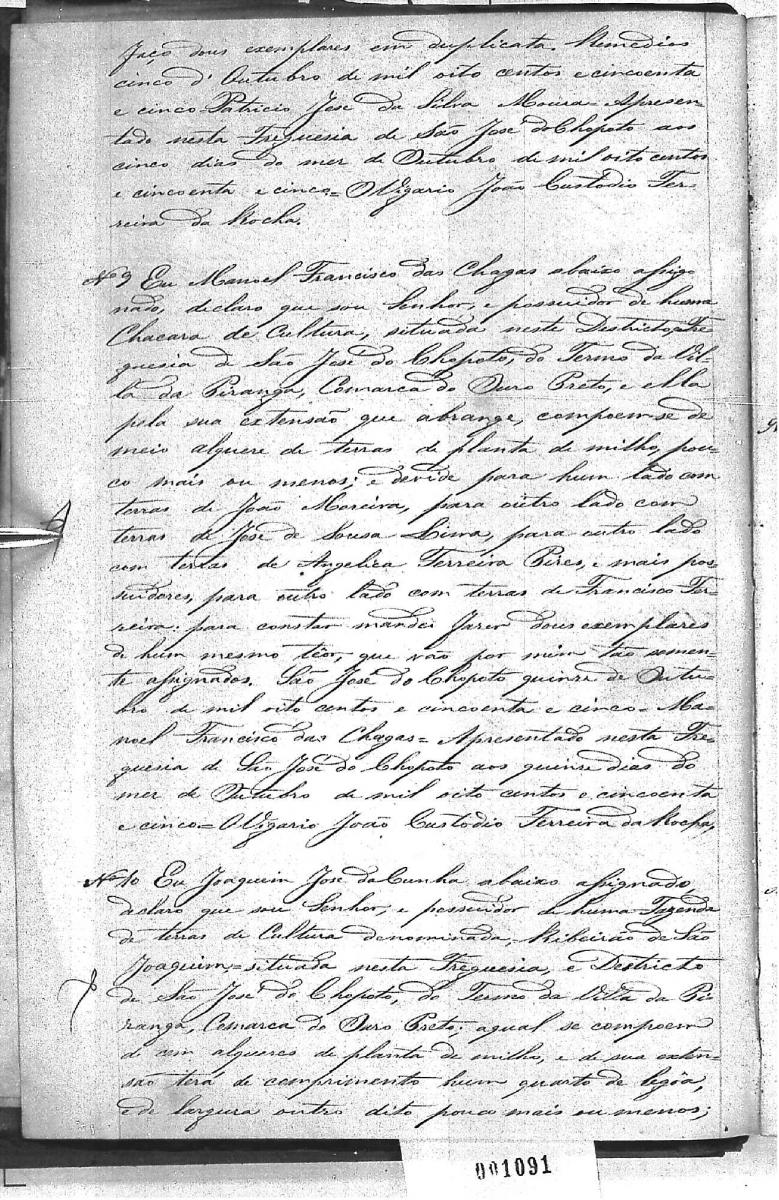 faço dous exemplares em duplicata. Remedios
cinco d'Outubro de mil oito centos e cincoenta
e cinco Patricio José da Silva Moura = Apresen-
tado nesta Freguesia de São José do Chopoto aos
cinco dias do mez de Outubro de mil oito centos
e cincoenta e cinco = O Vigario João Custodio Fer-
reira da Rocha.
Nº 9 Eu Manoel Francisco das Chagas abaixo assig-
nado, declaro que sou Senhor, e possuidor de huma
Chacara de Cultura, situada neste Destricto, Fre
guesia de São José do Chopoto, do Termo da Vil-
la da Piranga, Comarca do Ouro Preto, e ella
pela sua extensão que abrange, compoem-se de
meio alquere de terras de planta de milho, pou-
co mais ou menos; e devide para hum lado com
terras de João Moreira, para outro lado com
terras de José de Sousa Lima, para outro lado
com terras de Angelica Ferreira Pires, e mais pos-
suidores, para outro lado com terras de Francisco Fer-
reira: para constar mandei fazer dous exemplares
de hum mesmo têor, que vão por mim tão somen-
te assignados. São José do Chopoto quinze de Outu-
bro de mil oito centos e cincoenta e cinco = Ma-
noel Francisco das Chagas = Apresentado nesta Fre-
guesia de São José do Chopoto aos quinze dias do
mez de Outubro de mil oito centos e cincoenta
e cinco = O Vigario João Custodio Ferreira da Rocha,
Nº 10 Eu Joaquim José da Cunha abaixo assignado,
declaro que sou Senhor, e possuidor de huma Fazenda
de terras de Cultura denominada, Ribeirão de São
Joaquim, = situada nesta Freguesia, e Destricto
de São José do Chopoto, do Termo da Villa da Pi-
ranga, Comarca do Ouro Preto; aqual se compoem
de cem alqueres de planta de milho, e de sua exten-
são terá de comprimento hum quarto de legôa,
e de largura outro dito pouco mais ou menos;
001091